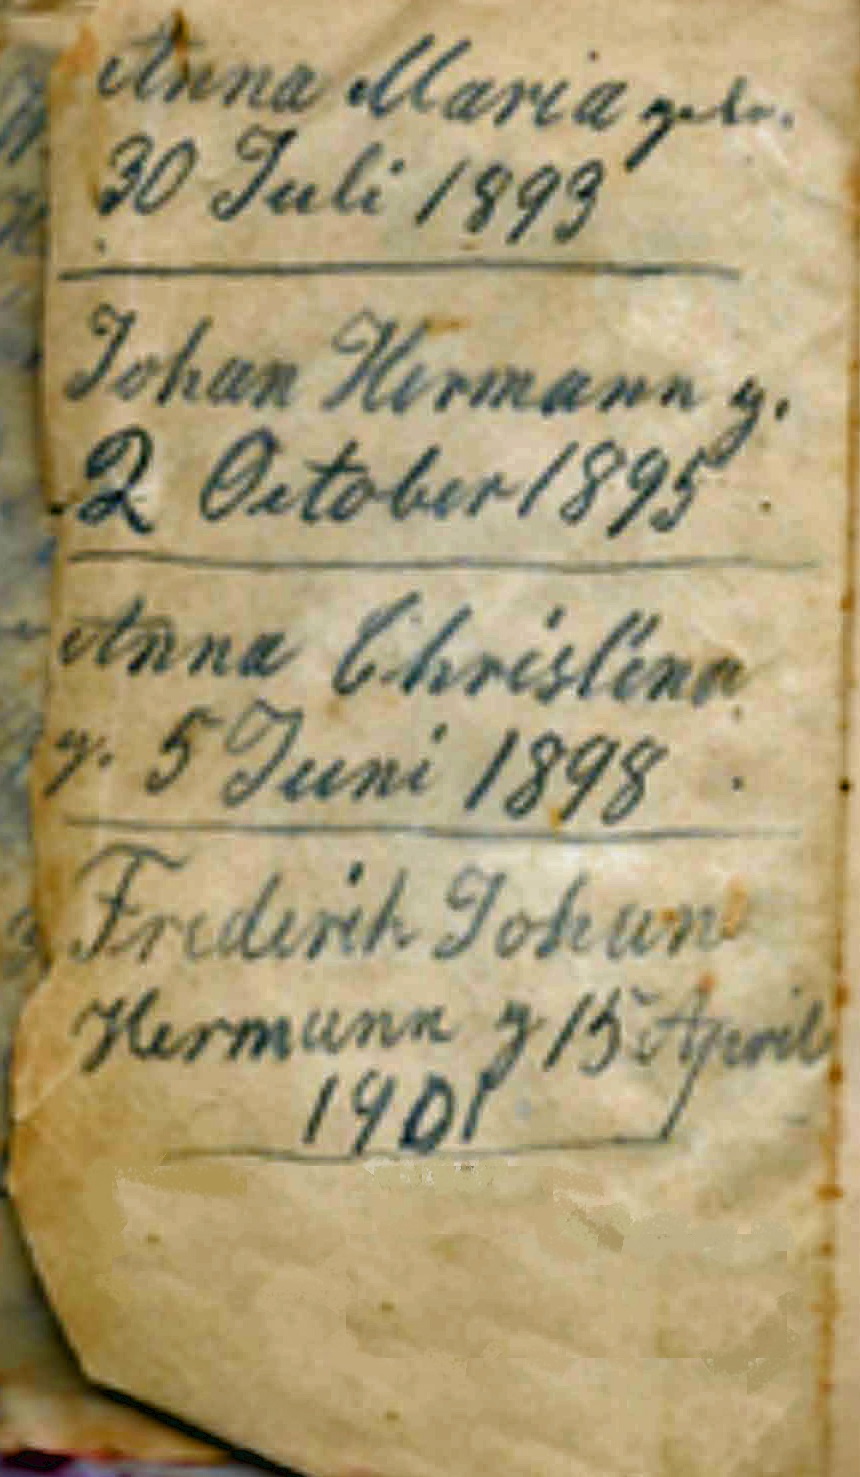 Anna Maria gebr.
30 Juli 1893
Johan Hermann g.
2 October 1895
Anna Christina
g. 5 Juni 1898
Frederik Johan
Hermann g 15 April
1901